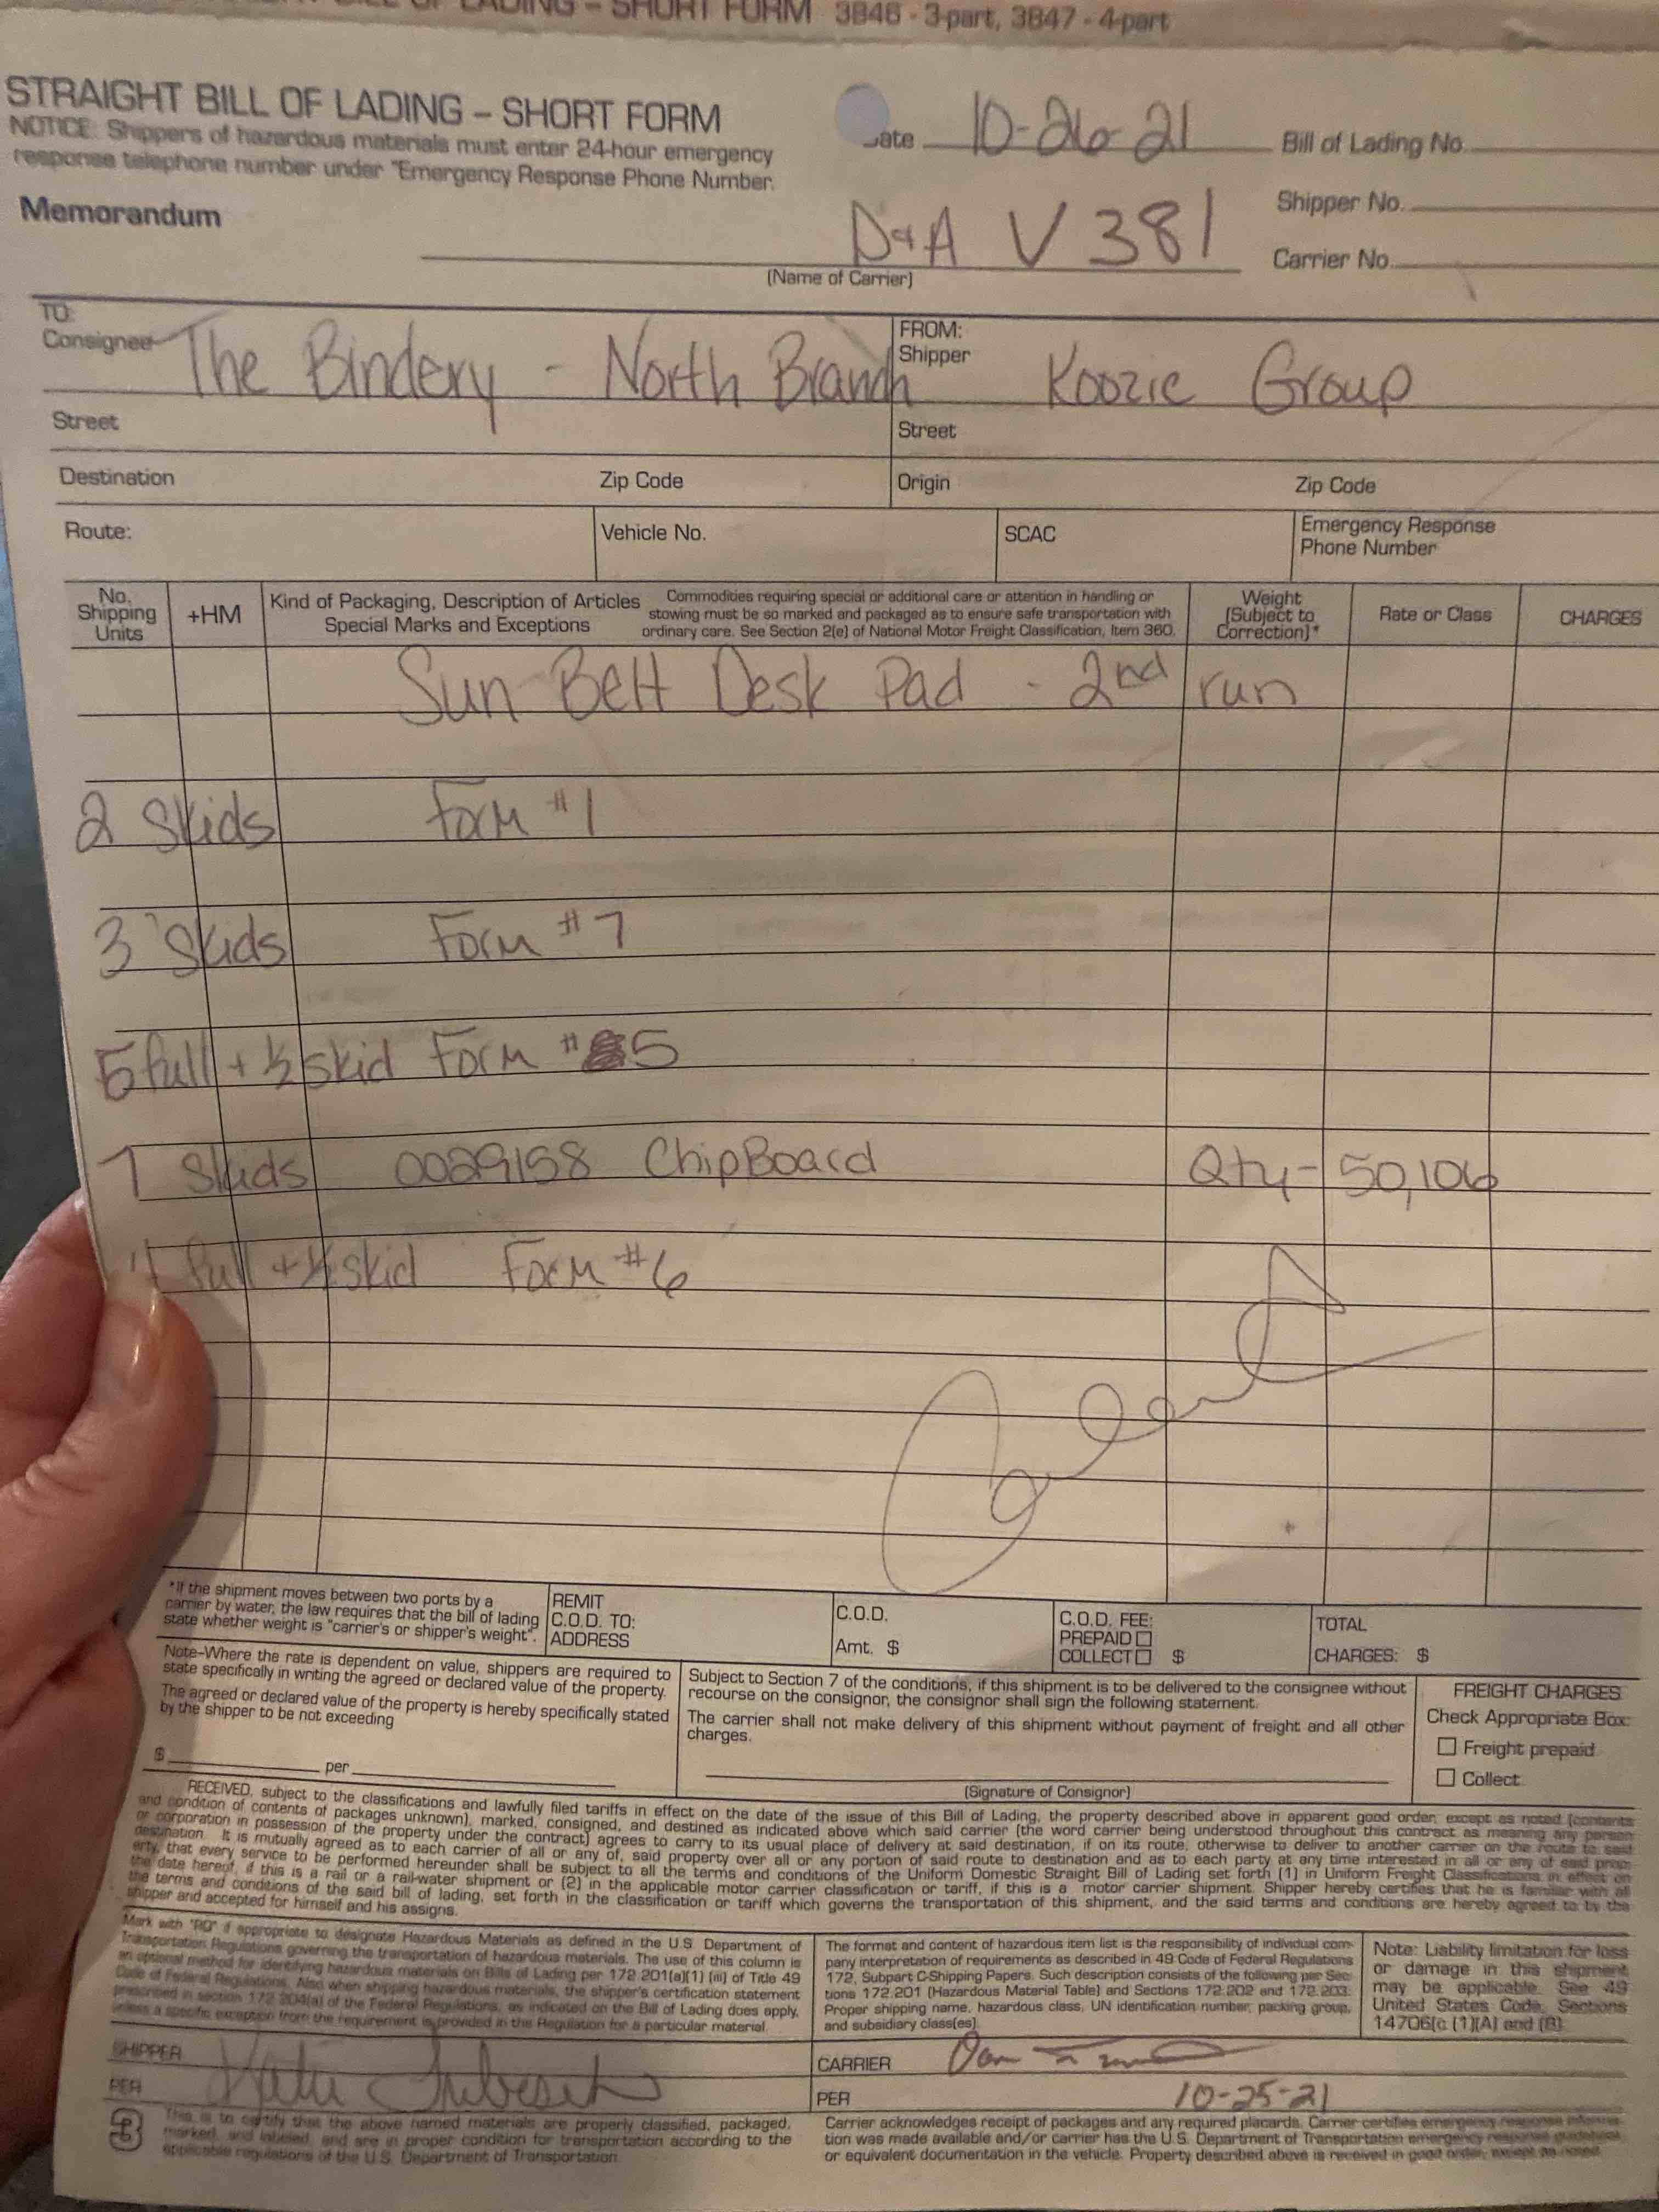 BILL OF LADING – SHORT FORM 3846 - 3-part, 3847 - 4-part
STRAIGHT BILL OF LADING – SHORT FORM
NOTICE: Shippers of hazardous materials must enter 24-hour emergency
response telephone number under "Emergency Response Phone Number.
Memorandum
ate 10-26-21
Bill of Lading No.
Shipper No.
Carrier No.
D&A V 381
(Name of Carrier)
TO:
Consignee The Bindery - North Branch
FROM:
Shipper Koozie Group
Street
Street
Destination Zip Code
Origin Zip Code
Route:
Vehicle No.
SCAC
Emergency Response
Phone Number
No.
Shipping
Units
+HM
Kind of Packaging, Description of Articles
Special Marks and Exceptions
Commodities requiring special or additional care or attention in handling or
stowing must be so marked and packaged as to ensure safe transportation with
ordinary care. See Section 2(e) of National Motor Freight Classification, Item 360.
Weight
(Subject to
Correction)*
Rate or Class
CHARGES
Sun Belt Desk Pad - 2nd run
2 Skids Form #1
3 Skids Form #7
5 full + ½ skid Form #5
7 Skids 0029158 ChipBoard Qty - 50,106
full + ½ skid Form #6
*If the shipment moves between two ports by a
carrier by water, the law requires that the bill of lading
state whether weight is "carrier's or shipper's weight".
REMIT
C.O.D. TO:
ADDRESS
C.O.D.
Amt. $
C.O.D. FEE:
PREPAID
COLLECT $
TOTAL
CHARGES: $
Note–Where the rate is dependent on value, shippers are required to
state specifically in writing the agreed or declared value of the property.
The agreed or declared value of the property is hereby specifically stated
by the shipper to be not exceeding
$ per
Subject to Section 7 of the conditions, if this shipment is to be delivered to the consignee without
recourse on the consignor, the consignor shall sign the following statement.
The carrier shall not make delivery of this shipment without payment of freight and all other
charges.
(Signature of Consignor)
FREIGHT CHARGES
Check Appropriate Box:
Freight prepaid
Collect
RECEIVED, subject to the classifications and lawfully filed tariffs in effect on the date of the issue of this Bill of Lading, the property described above in apparent good order, except as noted (contents
and condition of contents of packages unknown), marked, consigned, and destined as indicated above which said carrier (the word carrier being understood throughout this contract as meaning any person
or corporation in possession of the property under the contract) agrees to carry to its usual place of delivery at said destination, if on its route, otherwise to deliver to another carrier on the route to said
destination. It is mutually agreed as to each carrier of all or any of, said property over all or any portion of said route to destination and as to each party at any time interested in all or any of said prop-
erty, that every service to be performed hereunder shall be subject to all the terms and conditions of the Uniform Domestic Straight Bill of Lading set forth (1) in Uniform Freight Classifications in effect on
the date hereof, if this is a rail or a rail-water shipment or (2) in the applicable motor carrier classification or tariff, if this is a motor carrier shipment. Shipper hereby certifies that he is familiar with all
the terms and conditions of the said bill of lading, set forth in the classification or tariff which governs the transportation of this shipment, and the said terms and conditions are hereby agreed to by the
shipper and accepted for himself and his assigns.
Mark with "RQ" if appropriate to designate Hazardous Materials as defined in the U.S. Department of
Transportation Regulations governing the transportation of hazardous materials. The use of this column is
an optional method for identifying hazardous materials on Bills of Lading per 172.201(a)(1) (iii) of Title 49
Code of Federal Regulations. Also when shipping hazardous materials, the shipper's certification statement
prescribed in section 172.204(a) of the Federal Regulations, as indicated on the Bill of Lading does apply,
unless a specific exception from the requirement is provided in the Regulation for a particular material.
The format and content of hazardous item list is the responsibility of individual com-
pany interpretation of requirements as described in 49 Code of Federal Regulations
172, Subpart C-Shipping Papers. Such description consists of the following per Sec-
tions 172.201 (Hazardous Material Table) and Sections 172.202 and 172.203:
Proper shipping name, hazardous class, UN identification number, packing group,
and subsidiary class(es).
Note: Liability limitation for loss
or damage in this shipment
may be applicable. See 49
United States Code, Sections
14706(c (1)(A) and (B)
SHIPPER
PER
CARRIER
PER 10-25-21
3
This is to certify that the above named materials are properly classified, packaged,
marked, and labeled, and are in proper condition for transportation according to the
applicable regulations of the U.S. Department of Transportation
Carrier acknowledges receipt of packages and any required placards. Carrier certifies emergency response informa-
tion was made available and/or carrier has the U.S. Department of Transportation emergency response guidebook
or equivalent documentation in the vehicle. Property described above is received in good order, except as noted.